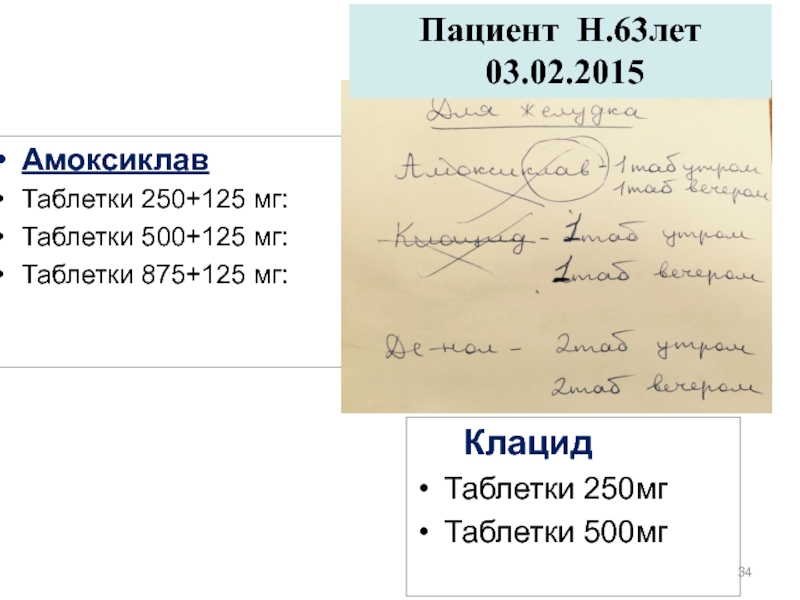 Пациент Н.63лет
03.02.2015
Для желудка
Амоксиклав - 1таб утром
1таб вечером
Клацид - 1таб утром
1таб вечером
Де-нол - 2таб утром
2таб вечером
• Амоксиклав
• Таблетки 250+125 мг:
• Таблетки 500+125 мг:
• Таблетки 875+125 мг:
Клацид
• Таблетки 250мг
• Таблетки 500мг
34